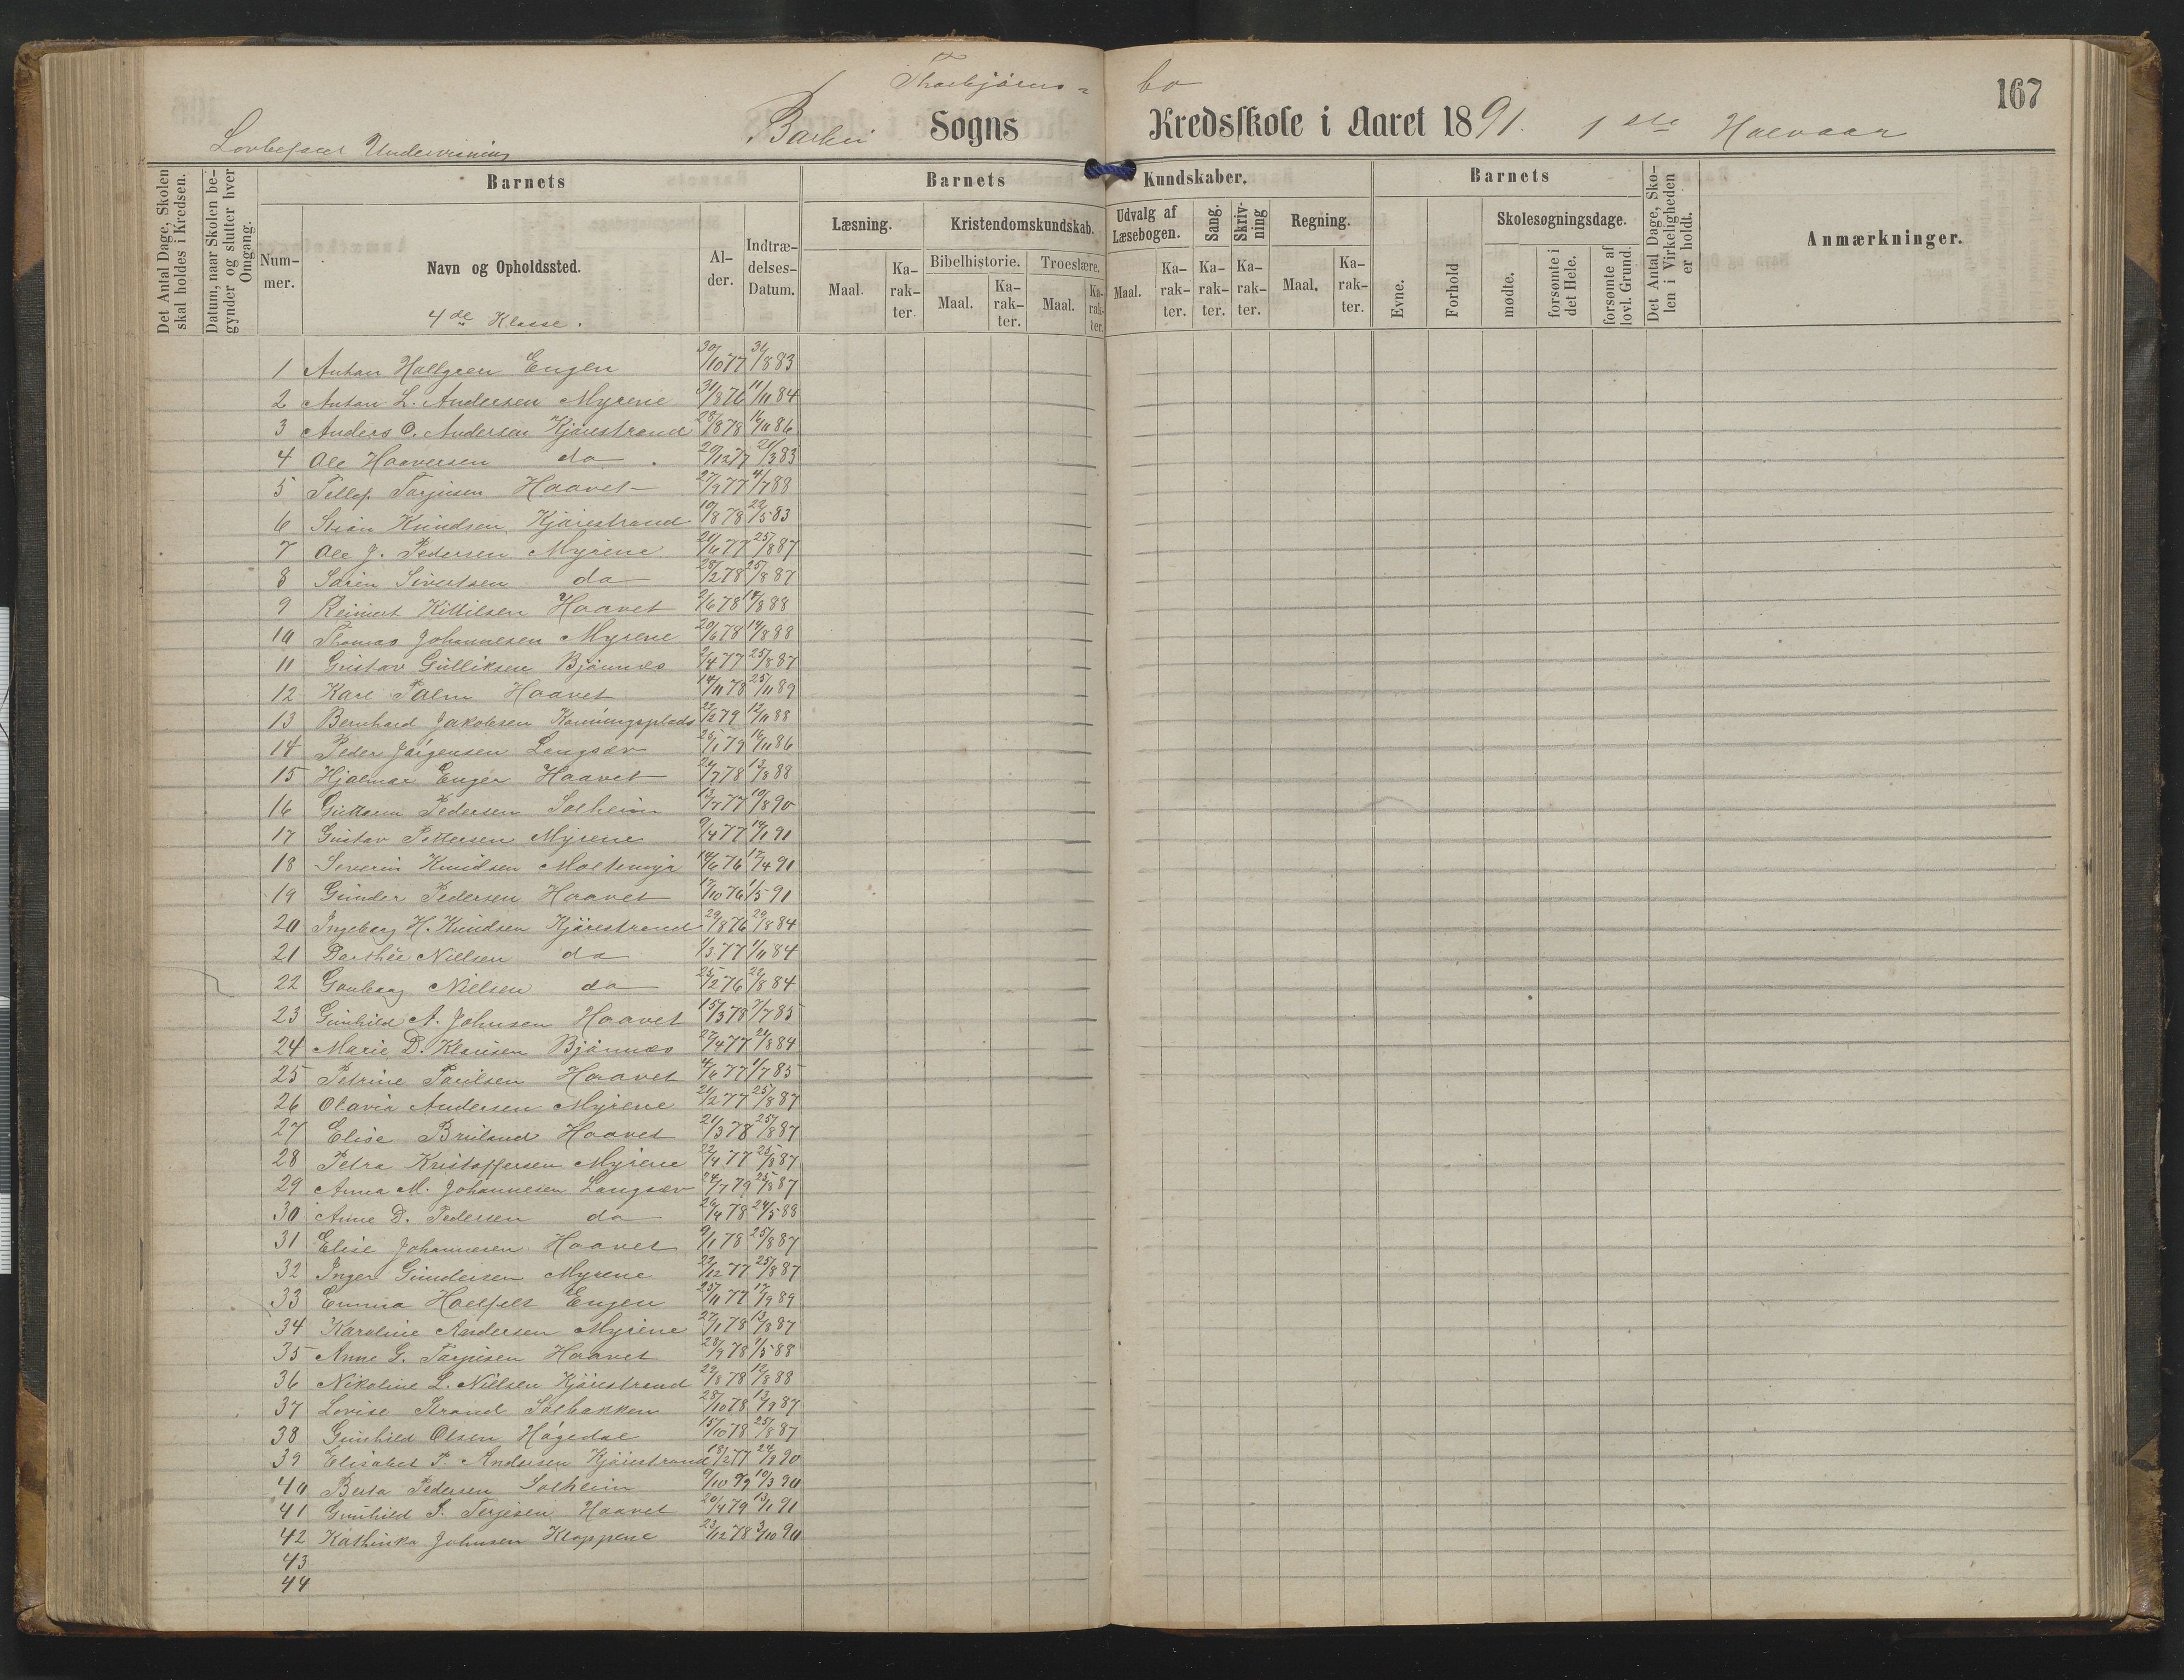 Thorbjörns=bo
167
Lovbefalet Undervisning
Barbu Sogns Kredsskole i Aaret 1891. 1ste Halvaar
Det Antal Dage, Skolen skal holdes i Kredsen.
Datum, naar Skolen begynder og slutter hver Omgang.
Barnets
Barnets Kundskaber.
Barnets
Det Antal Dage, Skolen i Virkeligheden er holdt.
Anmærkninger.
Nummer.
Navn og Opholdssted.
Alder.
Indtrædelses-Datum.
Læsning.
Kristendomskundskab.
Udvalg af Læsebogen.
Sang.
Skrivning
Regning.
Evne.
Forhold
Skolesøgningsdage.
Bibelhistorie.
Troeslære.
Maal.
Karakter.
Maal.
Karakter.
Maal.
Karakter.
Maal.
Karakter.
Karakter.
Karakter.
Maal.
Karakter.
mødte.
forsømte i det Hele.
forsømte af lovl. Grund.
4de Klasse.
1 Anton Hallgren Engen 30/10 77 31/8 83
2 Anton L. Andersen Myrene 31/8 76 11/11 84
3 Anders O. Andersen Kjörestrand 28/8 78 16/11 86
4 Ole Haaversen do 20/12 77 21/3 83
5 Tellef Tarjusen Haavet 27/9 77 4/7 88
6 Stian Knudsen Kjörestrand 10/8 78 22/5 83
7 Ole J. Pedersen Myrene 21/6 77 25/8 87
8 Sören Sivertsen do 28/2 78 25/8 87
9 Reinert Kittilsen Haavet 2/6 78 14/8 88
10 Thomas Johannesen Myrene 20/6 78 14/8 88
11 Gustav Gulliksen Bjönnes 2/4 77 25/8 87
12 Karl Palm Haavet 14/11 78 25/11 89
13 Bernhard Jakobsen 22/2 79 12/11 88
14 Peder Jörgensen Langsæv 25/1 79 16/11 86
15 Hjalmar Enger Haavet 21/7 78 13/8 88
16 Guttorm Pedersen Solheim 13/7 77 19/8 90
17 Gustav Pettersen Myrene 9/4 77 14/1 91
18 Severin Knudsen Moltemyr 14/6 76 17/4 91
19 Gunder Pedersen Haavet 17/10 76 1/5 91
20 Ingeborg H. Knudsen Kjörestrand 29/8 76 29/8 84
21 Dorthée Nielsen do 1/3 77 1/11 84
22 Gonborg Nielsen do 25/2 76 22/8 84
23 Gunhild A. Johnsen Haavet 15/3 78 7/7 85
24 Marie D. Klausen Bjönnes 27/4 77 21/8 84
25 Petrine Paulsen Haavet 4/6 77 1/7 85
26 Olavia Andersen Myrene 21/2 77 25/8 87
27 Elise Bruland Haavet 21/3 78 25/8 87
28 Petra Kristoffersen Myrene 22/4 77 25/8 87
29 Anna M. Johannesen Langsæv 24/7 79 25/8 87
30 Anne D. Pedersen do 26/4 78 24/5 88
31 Elise Johannesen Haavet 9/1 78 25/8 87
32 Inger Gundersen Myrene 22/12 77 25/8 87
33 Emma Engen 25/11 77 17/9 89
34 Karoline Andersen Myrene 27/1 78 13/8 87
35 Anne G. Tarjusen Haavet 28/9 78 1/5 88
36 Nikoline L. Nilsen Kjörestrand 29/8 78 12/8 88
37 Lovise Strand Solbakken 28/10 78 13/9 87
38 Gunhild Olsen Högedal 15/10 78 25/8 87
39 Elisabet P. Andersen Kjörestrand 18/2 77 24/9 90
40 Berta Pedersen Solheim 9/10 79 10/3 90
41 Gunhild S. Terjesen Haavet 20/4 79 13/1 91
42 Kathinka Johnsen Kloppene 23/12 78 3/10 90
43
44